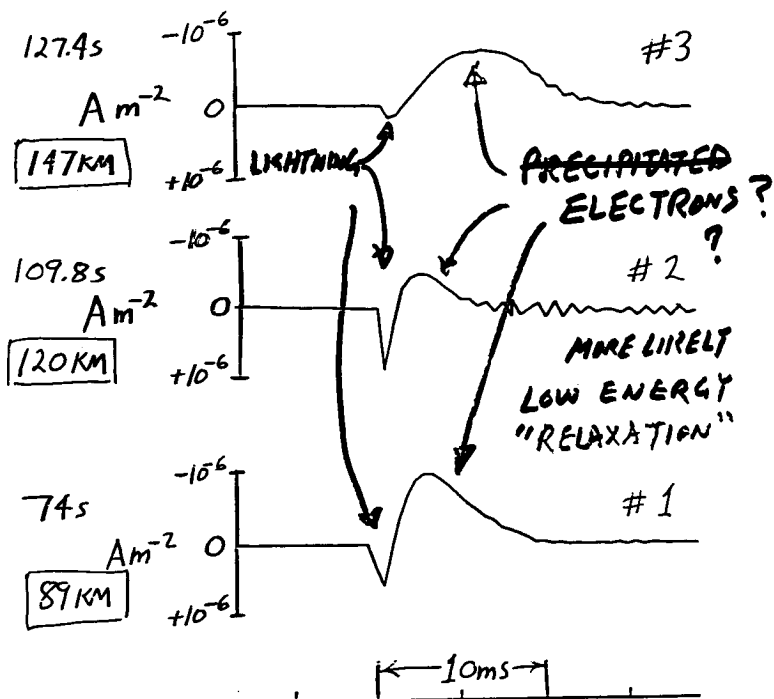 127.4s
-10⁻⁶
#3
A m⁻² 0
147KM
+10⁻⁶
LIGHTNING
PRECIPITATED
ELECTRONS?
?
109.8s
-10⁻⁶
#2
A m⁻² 0
120KM
+10⁻⁶
MORE LIKELY
LOW ENERGY
"RELAXATION"
74s
-10⁻⁶
#1
A m⁻² 0
89KM
+10⁻⁶
10ms